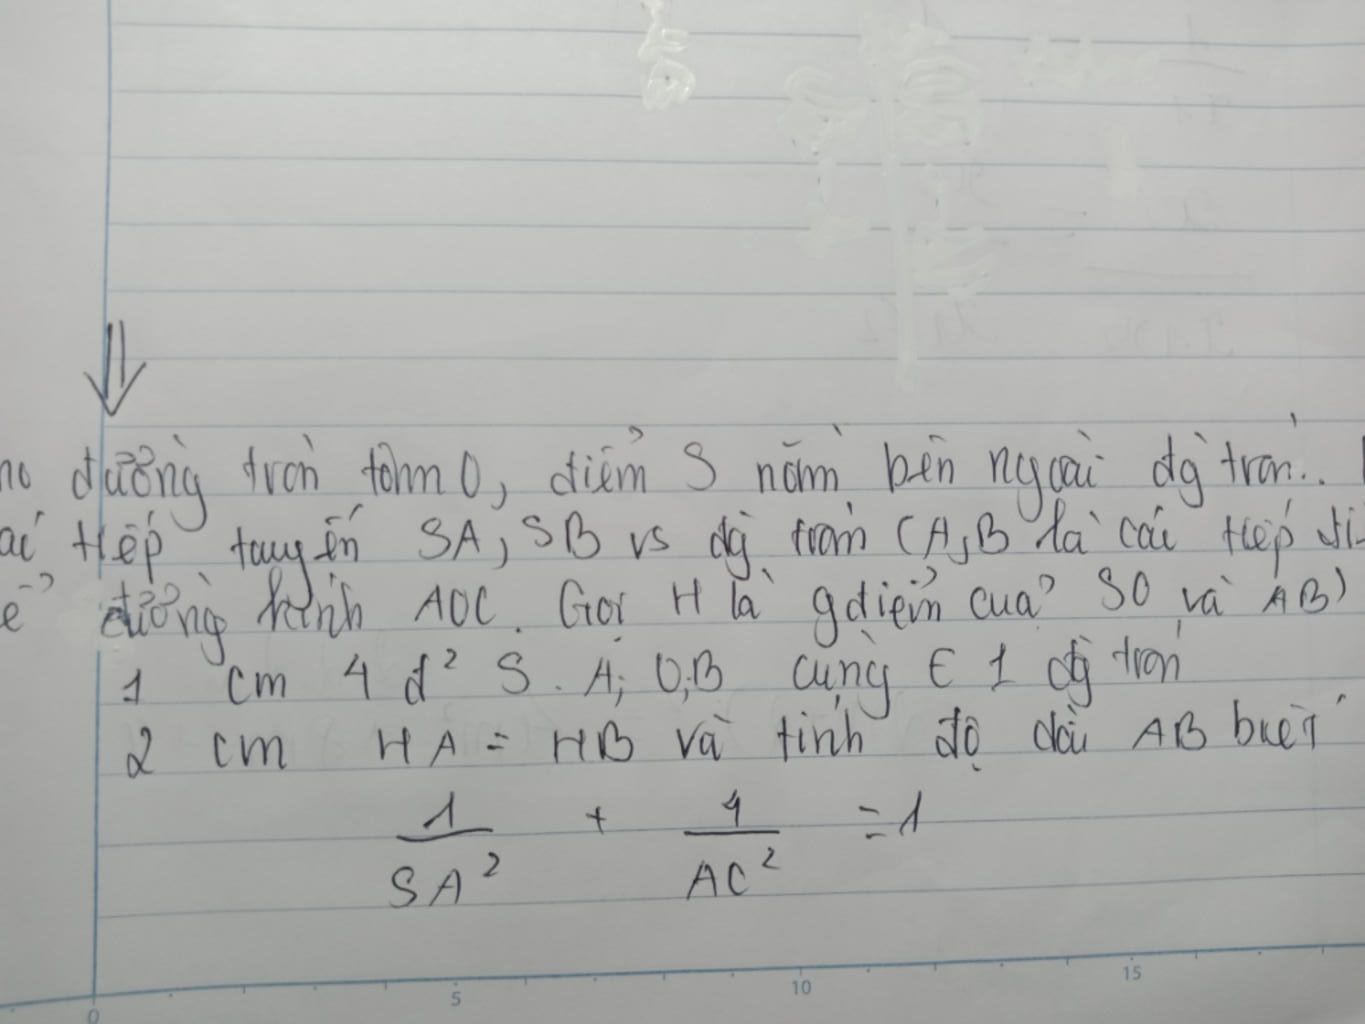 đường tròn tâm O, điểm S nằm bên ngoài đg tròn..
tiếp tuyến SA, SB vs đg tròn (A,B là các tiếp
đường kính AOC. Gọi H là gđiểm của SO và AB)
1 cm 4 đ² S. A; O;B cùng ∈ 1 đg tròn
2 cm HA = HB và tính độ dài AB biết
1/SA² + 4/AC² = 1
0 5 10 15